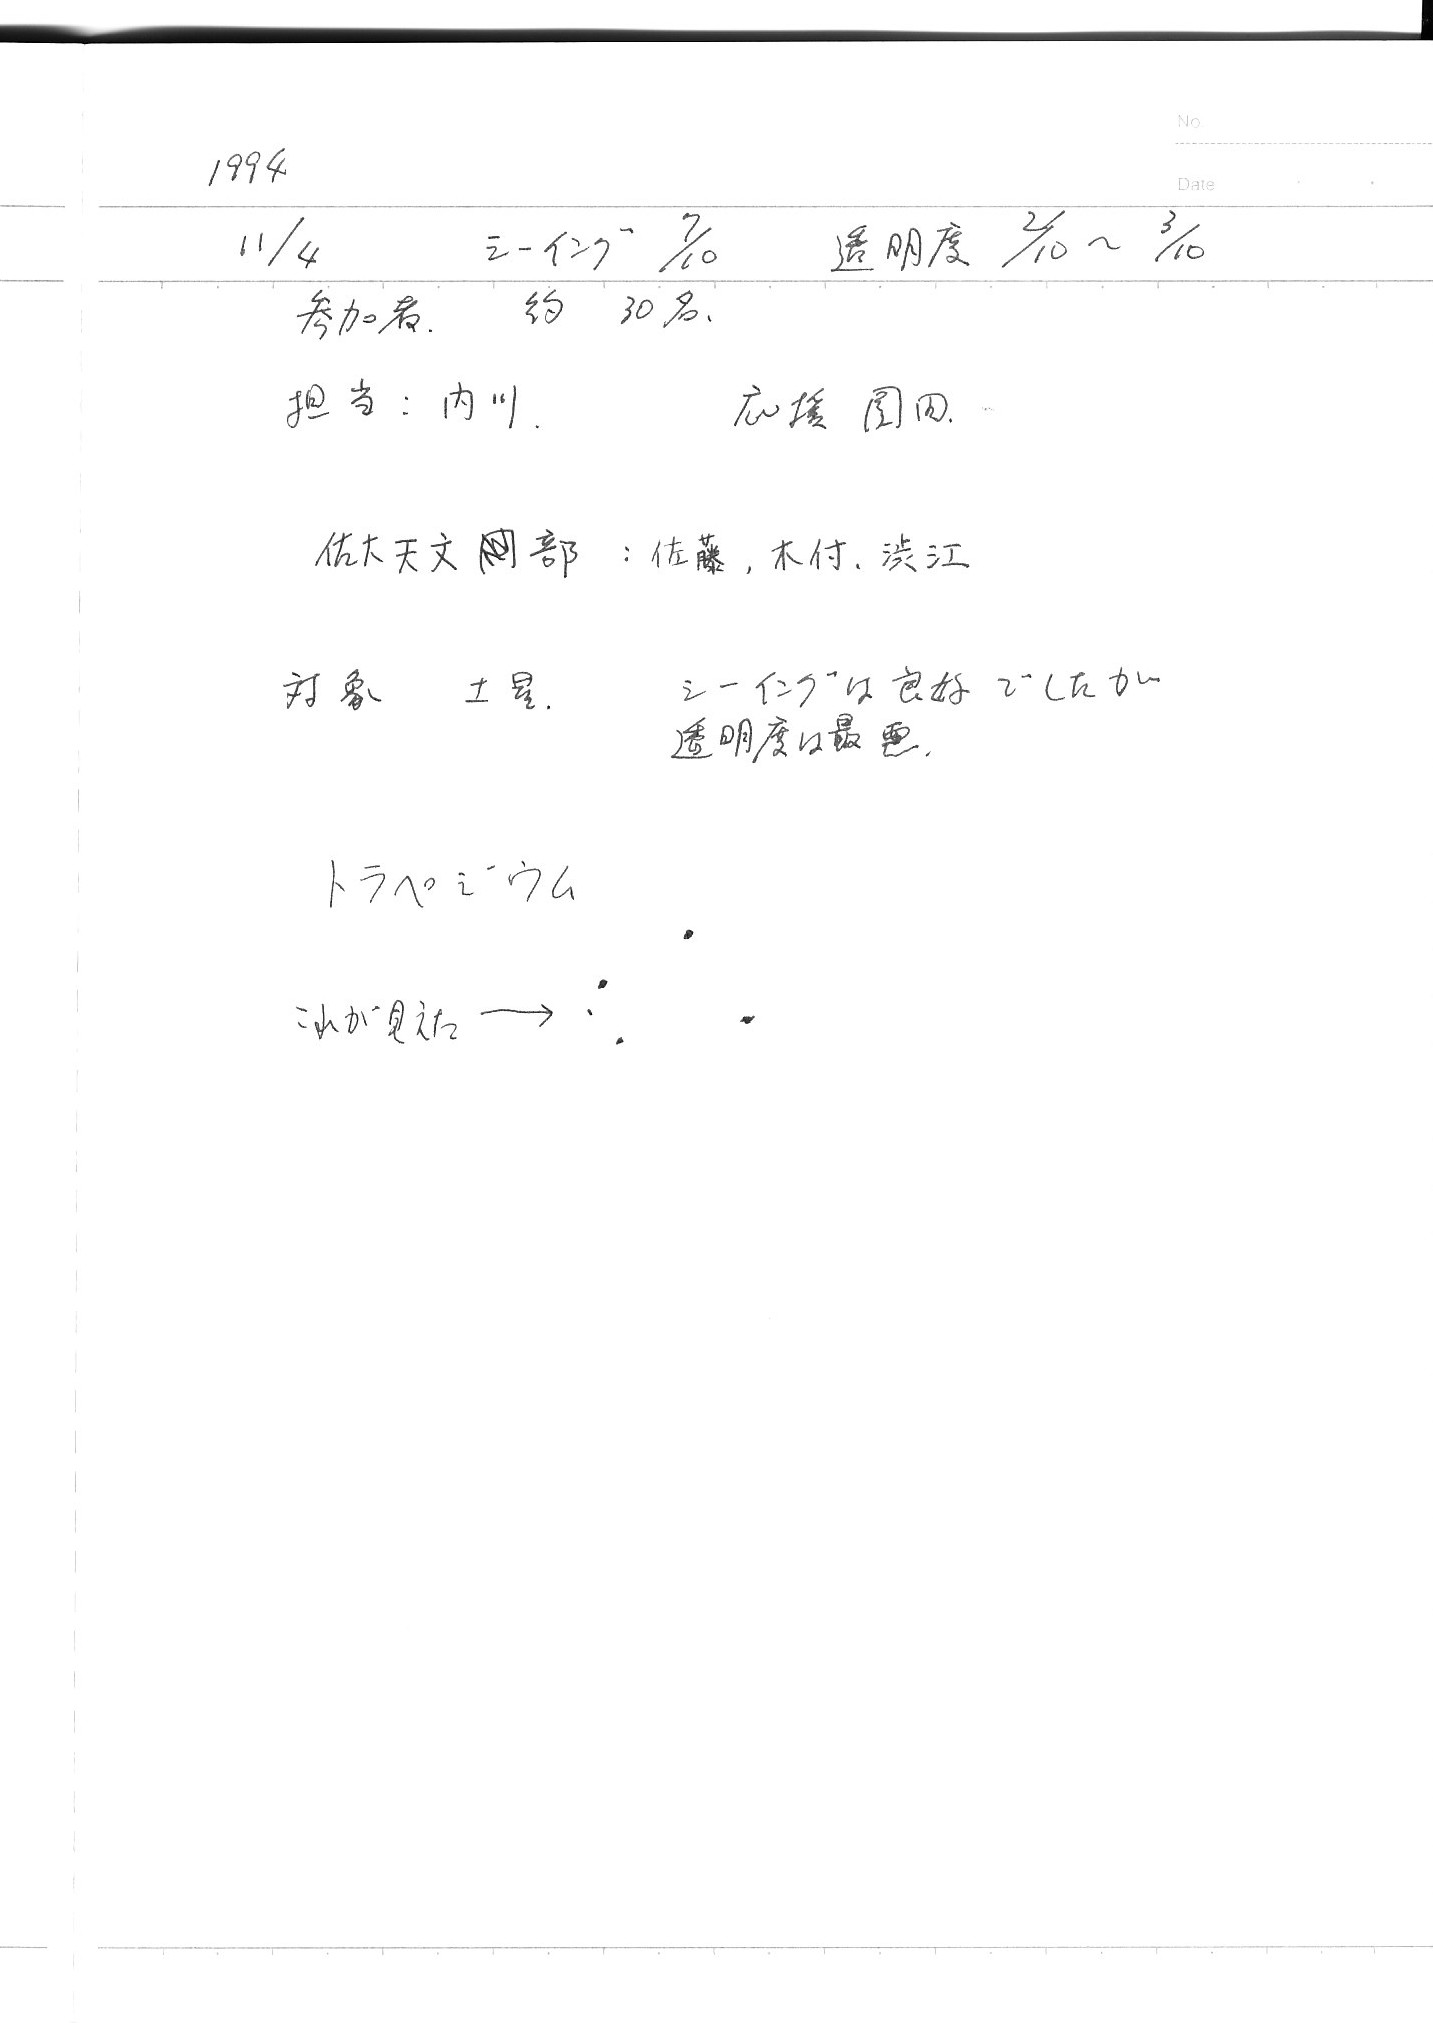 No
1994
Date
11/4 シーイング 7/10 透明度 2/10〜3/10
参加者. 約 30名.
担当:内川. 応援 園田.
佐大天文部:佐藤,木付、渋江
対象 土星. シーイングは良好でしたが
透明度は最悪.
トラペジウム
これが見えた →